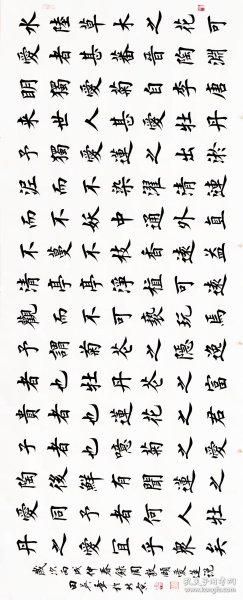 水陸草木之花可
愛者甚蕃晉陶淵
明獨愛菊自李唐
来世人甚愛牡丹
予獨愛蓮之出淤
泥而不染濯清漣
而不妖中通外直
不蔓不枝香遠益
清亭亭淨植可遠
觀而不可褻玩焉
予謂菊花之隱逸
者也牡丹花之富
貴者也蓮花之君
子者也噫菊之愛
陶後鮮有聞蓮之
愛同予者何人牡
丹之愛宜乎衆矣
歲次丙戌仲春錄周敦頤愛蓮説
田英章於北京